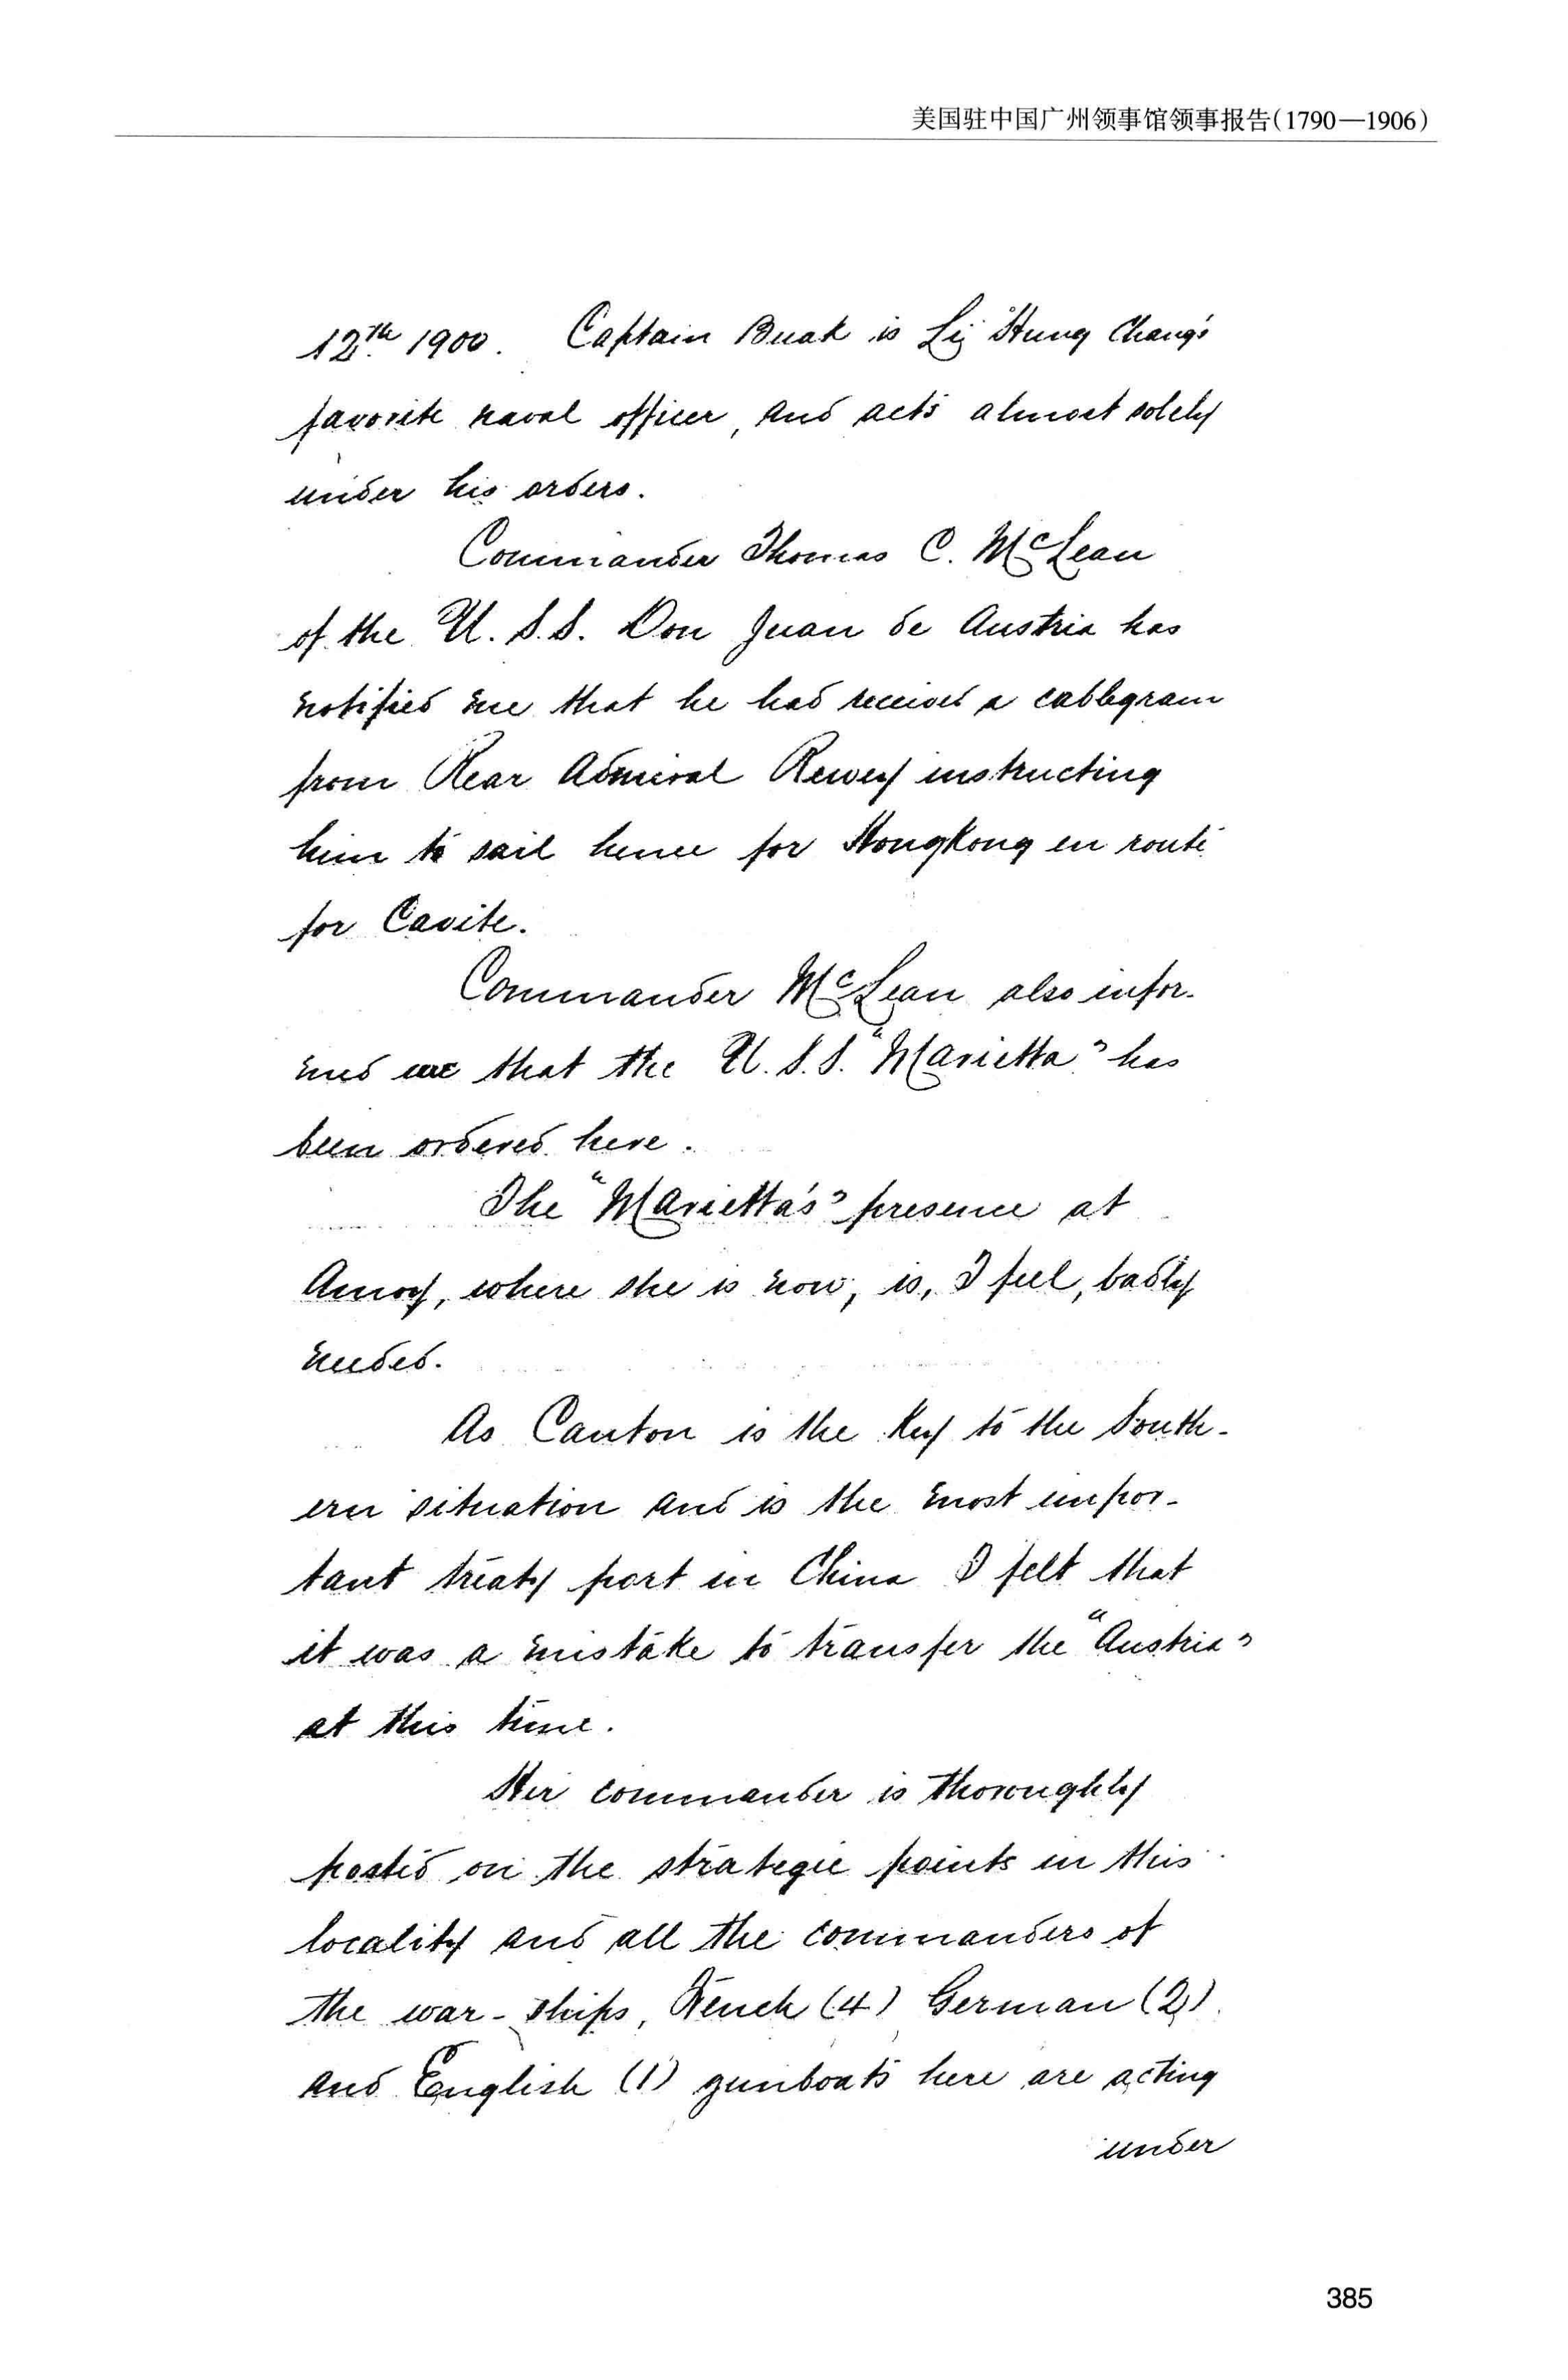 美国驻中国广州领事馆领事报告(1790—1906)
12th 1900. Captain Buak is Li Hung Chang's
favorite naval officer, and acts almost solely
under his orders.
Commander Thomas C. McLean
of the U.S.S. Don Juan de Austria has
notified me that he had received a cablegram
from Rear Admiral Remey instructing
him to sail hence for HongKong en route
for Cavite.
Commander McLean also infor-
med me that the U.S.S. "Marietta" has
been ordered here.
The "Marietta's" presence at
Amoy, where she is now, is, I feel, badly
needed.
As Canton is the Key to the South-
ern situation and is the most impor-
tant treaty port in China I felt that
it was a mistake to transfer the "Austria"
at this time.
Her commander is thoroughly
posted on the strategic points in this
locality and all the commanders of
the war-ships, French (4) German (2)
and English (1) gunboats here are acting
under
385